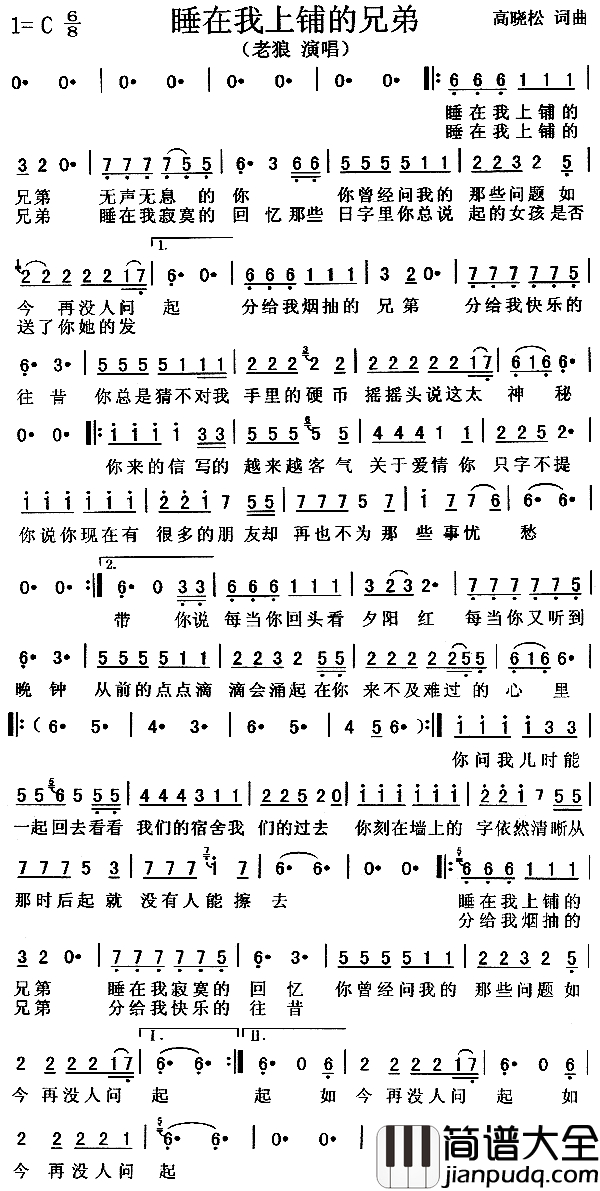 1=C 6/8 睡在我上铺的兄弟 高晓松 词曲
（老狼 演唱）
0· 0· | 0· 0· | 0· 0· | 0· 0· |: 6 6 6 1 1 1 |
睡在我上铺的
睡在我上铺的
3 2 0· | 7 7 7 7 5 5 | 6· 3 6 6 | 5 5 5 5 1 1 | 2 2 3 2 5 |
兄第 无声无息的你 你曾经问我的那些问题如
兄弟 睡在我寂寞的回忆那些日字里你总说起的女孩是否
1.
2 2 2 2 2 1 7 | 6· 0· | 6 6 6 1 1 1 | 3 2 0· | 7 7 7 7 7 5 |
今再没人问起 分给我烟抽的兄第 分给我快乐的
送了你她的发
6· 3· | 5 5 5 5 1 1 1 | 2 2 2 2 2 | 2 2 2 2 2 1 7 | 6 1 6 6· |
往昔 你总是猜不对我手里的硬币 摇摇头说这太神秘
0· 0· |: 1 1 1 1 3 3 | 5 5 5 5 5 | 4 4 4 4 1 1 | 2 2 5 2· |
你来的信写的越来越客气 关于爱情你只字不提
1 1 1 1 1 1 | 2 2 1 7 5 5 | 7 7 7 5 5 | 1 7 7 6 | 6· 6· |
你说你现在有很多的朋友却再也不为那些事忧愁
2.
0· 0· :| 6· 0 3 3 | 6 6 6 1 1 1 | 3 2 3 2· | 7 7 7 7 7 5 |
带 你说每当你回头看夕阳红 每当你又听到
6· 3· | 5 5 5 5 1 1 | 2 2 3 2 5 5 | 2 2 2 2 2 5 5 | 6 1 6 6· |
晚钟 从前的点点滴滴会涌起在你来不及难过的心里
|:（6· 5· | 4· 3· | 6· 5· | 4 5 6· ）:| 1 1 1 1 3 3 |
你问我儿时能
5 5 6 5 5 5 | 4 4 4 3 1 1 | 2 2 5 2 0 | 1 1 1 1 1 1 | 2 2 1 7 5 5 |
一起回去看看我们的宿舍我们的过去 你刻在墙上的字依然清晰从
7 7 7 5 3 | 7 7 7 1 7 | 6· 6· | 0· 0· |: 6 6 6 1 1 1 |
那时后起就没有人能擦去 睡在我上铺的
分给我烟抽的
3 2 0· | 7 7 7 7 7 5 | 6· 3· | 5 5 5 5 1 1 | 2 2 3 2 5 |
兄第 睡在我寂寞的回忆 你曾经问我的那些问题如
兄第 分给我快乐的往昔
I. II.
2 2 2 2 1 7 | 6· 6· :| 6· 0 2 | 2 2 2 2 1 7 | 6· 0 2 |
今再没人问起 起如今再没人问起如
2 2 2 2 1 | 6· 6· | 0· 0·
今再没人问起
简谱大全
jianpudq.com